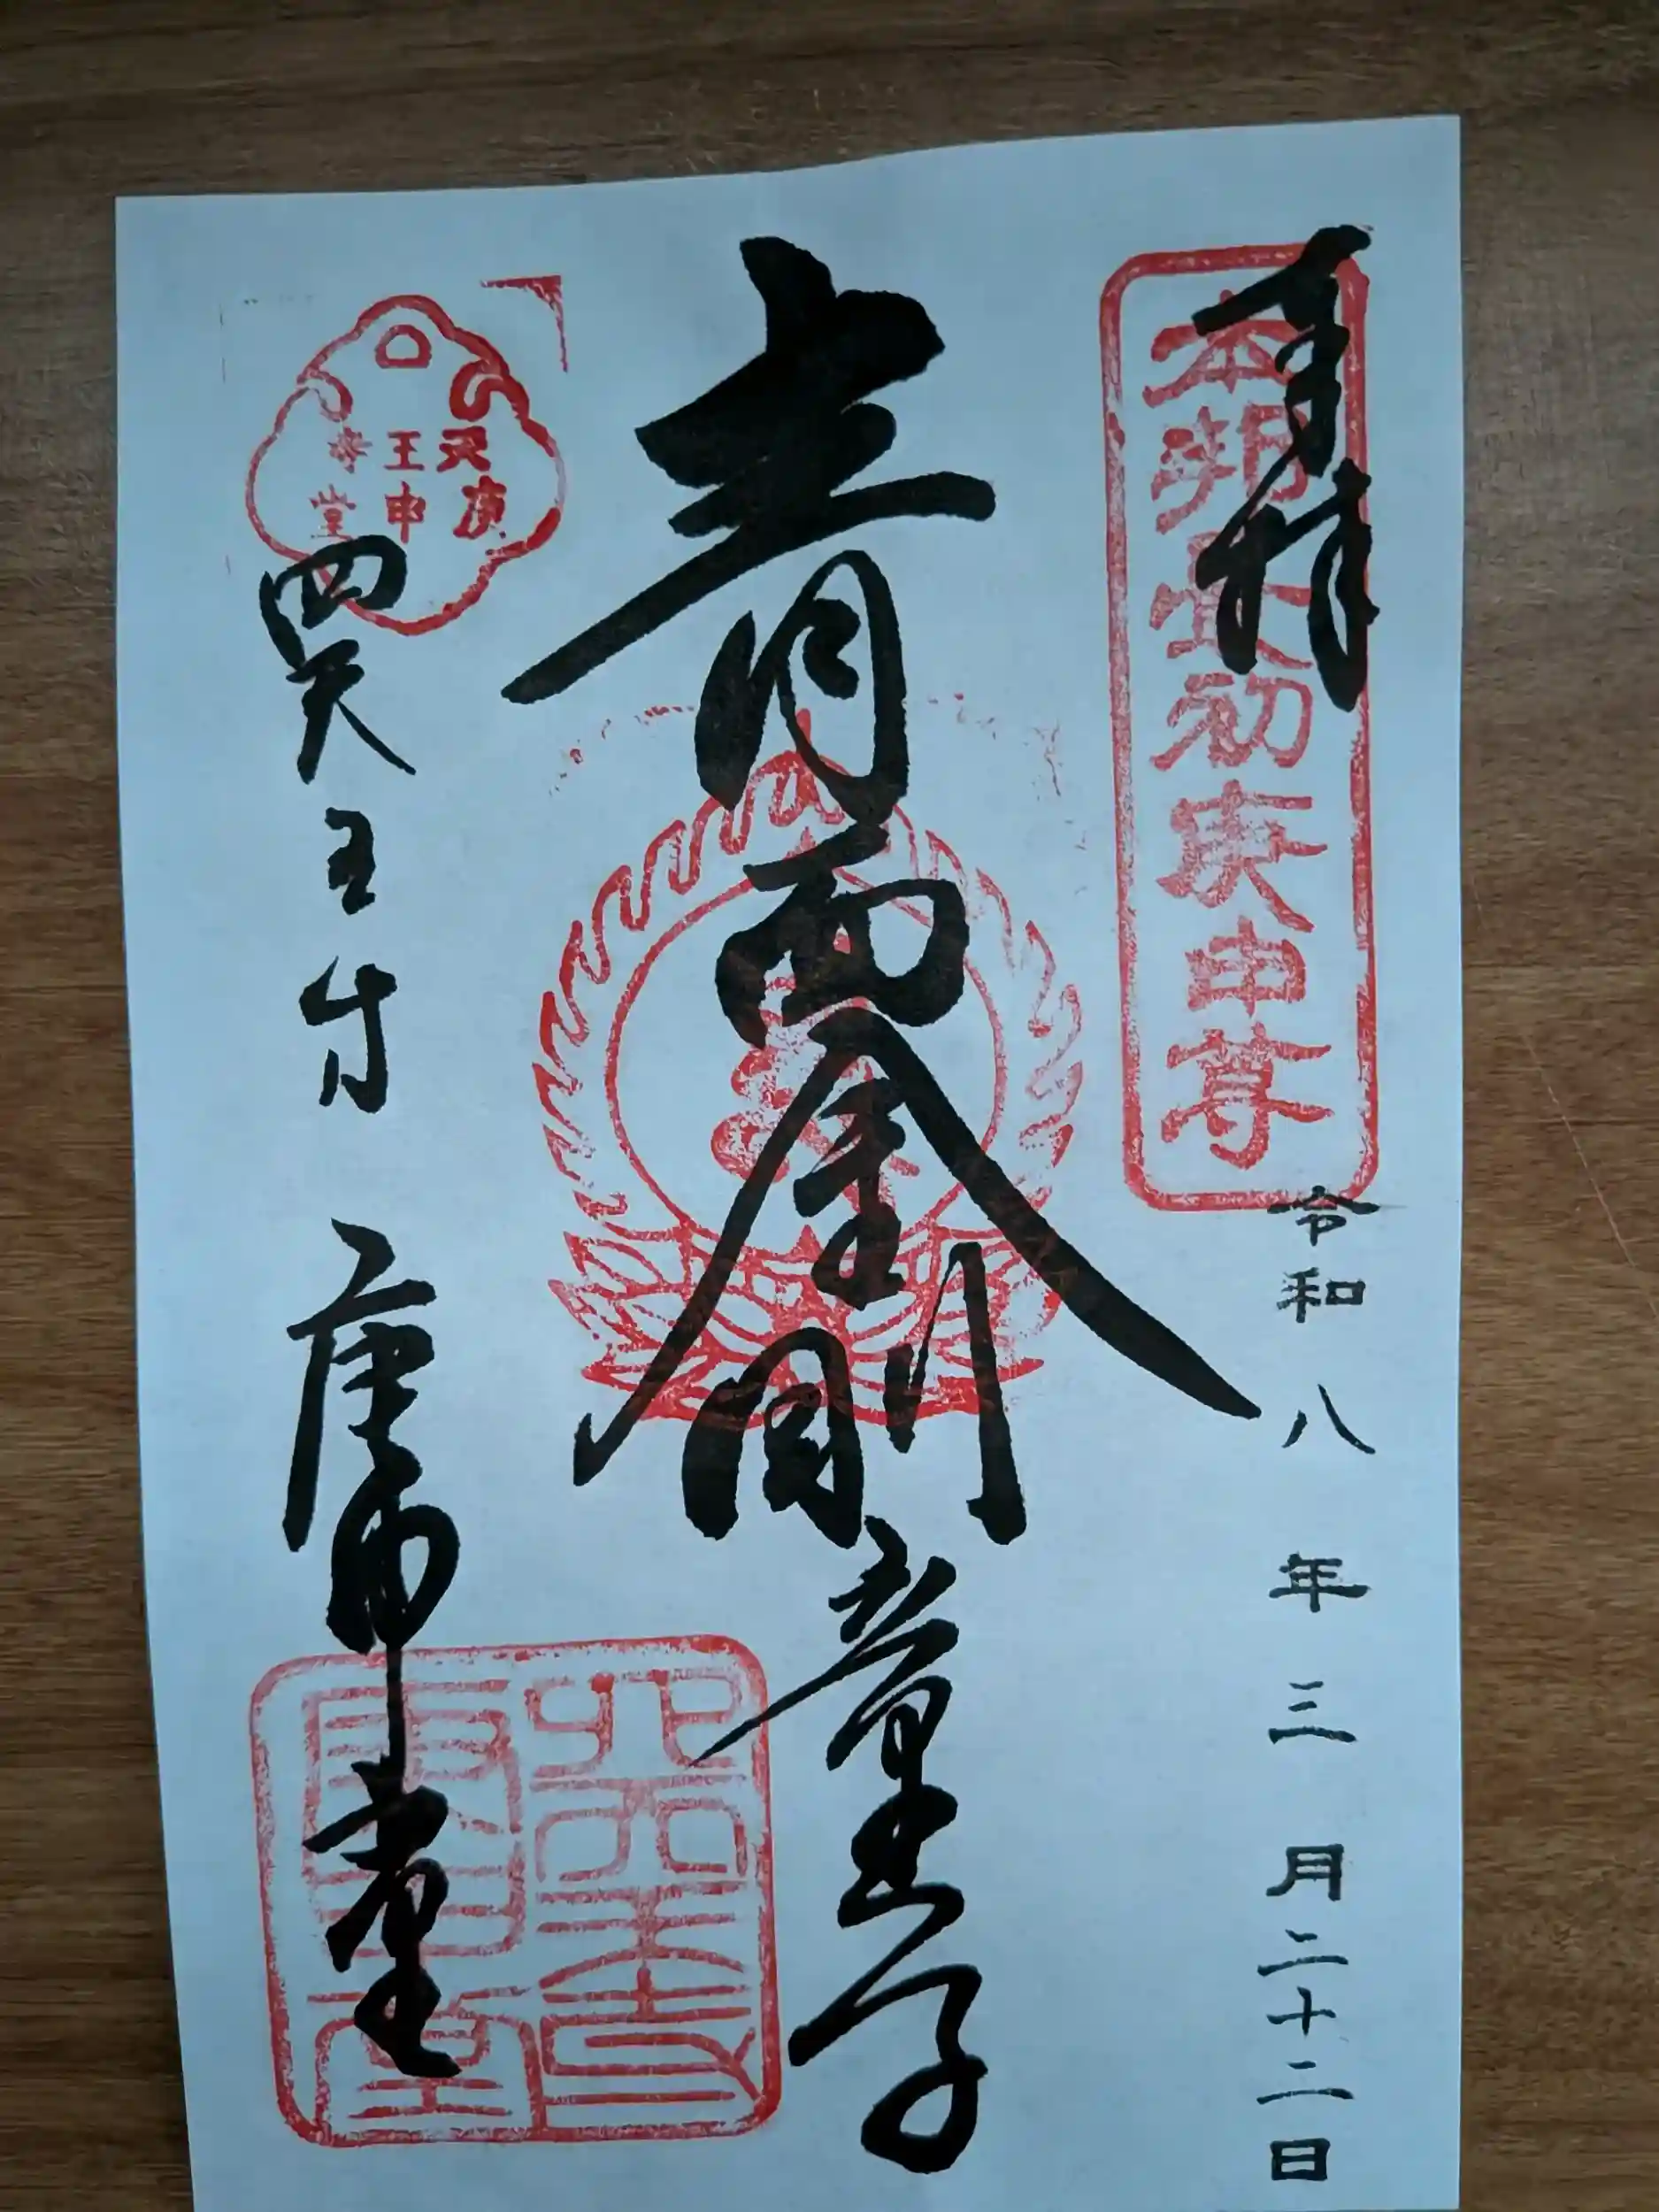 奉拝
本邦最初庚申尊
令和八年三月二十二日
青面金剛童子
天王寺
庚申堂
四天王寺 庚申堂
四天王寺
庚申堂